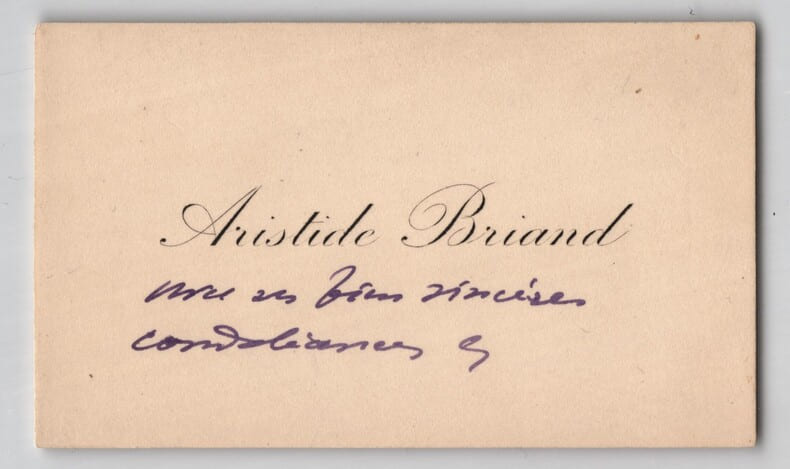 Aristide Briand
avec ses bien sincères
condoléances